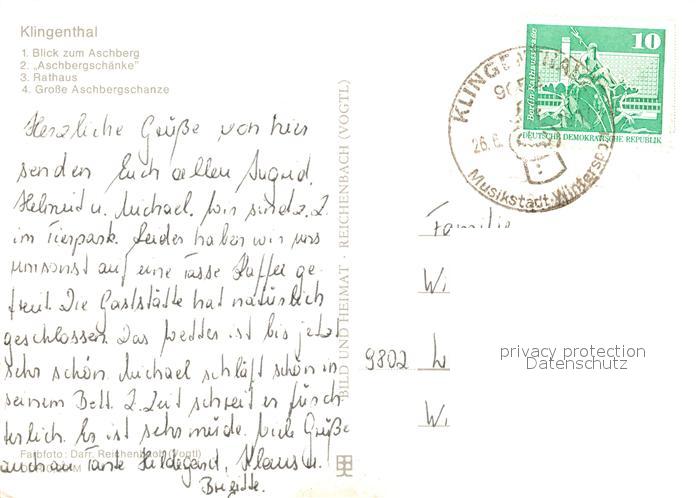 Klingenthal
1. Blick zum Aschberg
2. „Aschbergschänke"
3. Rathaus
4. Große Aschbergschanze
Herzliche Grüße von hier
senden Euch allen Ingrid,
Helmut u. Michael. Wir sind z. Z.
im Tierpark. Leider haben wir uns
umsonst auf eine Tasse Kaffee ge-
freut. Die Gaststätte hat natürlich
geschlossen. Das Wetter ist bis jetzt
sehr schön. Michael schläft schön in
seinem Bett. Z. Zeit schreit er fürch-
terlich. Er ist sehr müde. Viele Grüße
auch an Tante Hildegard, Klaus u.
Brigitte.
Farbfoto: Darr, Reichenbach (Vogtl)
BILD UND HEIMAT · REICHENBACH (VOGTL)
10
Berlin, Rathausstraße
DEUTSCHE DEMOKRATISCHE REPUBLIK
KLINGENTHAL
26.6.
Musikstadt Wintersport
Familie
W
9802 L
W
privacy protection
Datenschutz